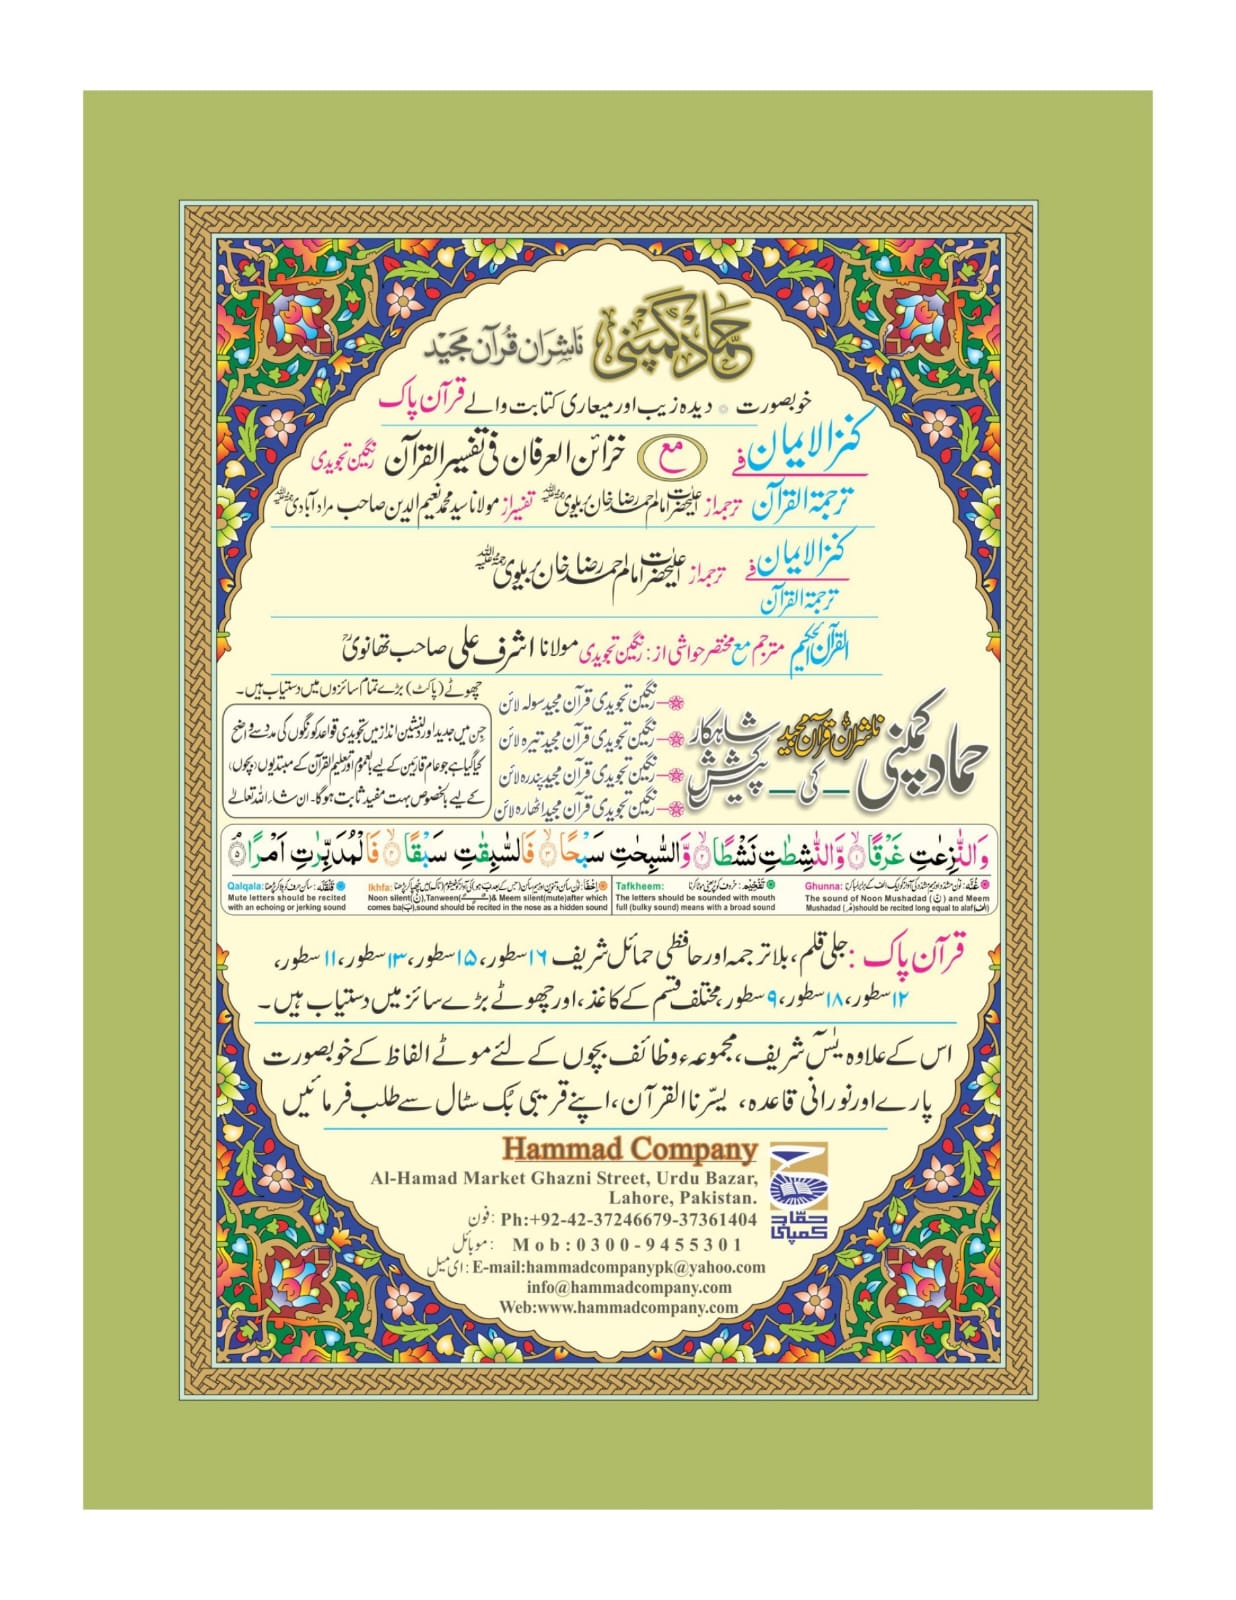 حماد کمپنی ناشران قرآن مجید
خوبصورت ٭ دیدہ زیب اور معیاری کتابت والے قرآن پاک
کنزالایمان فے مع خزائن العرفان فی تفسیر القرآن رنگین تجویدی
ترجمۃ القرآن ترجمہ از اعلیٰحضرت امام احمد رضا خان بریلوی رحمۃ اللہ علیہ تفسیر از مولانا سید محمد نعیم الدین صاحب مراد آبادی رحمۃ اللہ علیہ
کنزالایمان فے ترجمہ از اعلیٰحضرت امام احمد رضا خان بریلوی رحمۃ اللہ علیہ
ترجمۃ القرآن
القرآن الحکیم مترجم مع مختصر حواشی از: رنگین تجویدی مولانا اشرف علی صاحب تھانویؒ
حماد کمپنی ناشران قرآن مجید کی شاہکار پیشکش
رنگین تجویدی قرآن مجید سولہ لائن
رنگین تجویدی قرآن مجید تیرہ لائن
رنگین تجویدی قرآن مجید پندرہ لائن
رنگین تجویدی قرآن مجید اٹھارہ لائن
چھوٹے (پاکٹ) بڑے تمام سائزوں میں دستیاب ہیں۔
جن میں جدید اور دلنشین انداز میں تجویدی قواعد کو رنگوں کی مدد سے واضح
کیا گیا ہے جو عام قارئین کے لیے بالعموم اور تعلیم القرآن کے مبتدیوں (بچوں)
کے لیے بالخصوص بہت مفید ثابت ہوگا۔ ان شاء اللہ تعالےٰ
وَالنّٰزِعٰتِ غَرْقًا ۱ وَّالنّٰشِطٰتِ نَشْطًا ۲ وَّالسّٰبِحٰتِ سَبْحًا ۳ فَالسّٰبِقٰتِ سَبْقًا ۴ فَالْمُدَبِّرٰتِ اَمْرًا ۵
Ghunna: غُنَّہ:
The sound of Noon Mushadad (نّ) and Meem
Mushadad (مّ)should be recited long equal to alaf(الف)
Tafkheem: تَفْخِیْم: حروف کو پُر یعنی موٹا کرنا
The letters should be sounded with mouth
full (bulky sound) means with a broad sound
Ikhfa: اِخْفَا:
Noon silent(نْ),Tanween(ــًــٍــٌ)& Meem silent(mute)after which
comes ba(ب),sound should be recited in the nose as a hidden sound
Qalqala: قَلْقَلَہ: ساکن حرف کو ہلا کر پڑھنا
Mute letters should be recited
with an echoing or jerking sound
قرآن پاک: جلی قلم، بلا ترجمہ اور حافظی حمائل شریف ۱۶ سطور، ۱۵ سطور، ۱۳ سطور، ۱۱ سطور،
۱۲ سطور، ۱۸ سطور، ۹ سطور، مختلف قسم کے کاغذ، اور چھوٹے بڑے سائز میں دستیاب ہیں۔
اس کے علاوہ یٰسٓ شریف، مجموعہ وظائف بچوں کے لئے موٹے الفاظ کے خوبصورت
پارے اور نورانی قاعدہ، یسّرنا القرآن، اپنے قریبی بُک سٹال سے طلب فرمائیں
Hammad Company
Al-Hamad Market Ghazni Street, Urdu Bazar,
Lahore, Pakistan.
فون: Ph:+92-42-37246679-37361404
موبائل: Mob:0300-9455301
ای میل: E-mail:hammadcompanypk@yahoo.com
info@hammadcompany.com
Web:www.hammadcompany.com
حمّاد
کمپنی